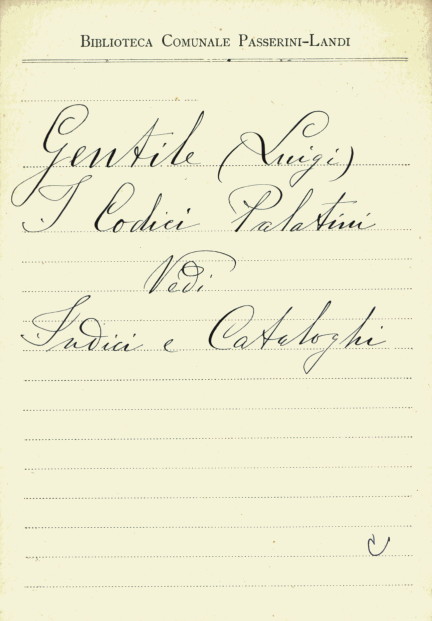 Biblioteca Comunale Passerini-Landi
Gentile (Luigi)
I Codici Palatini
Vedi
Indici e Cataloghi